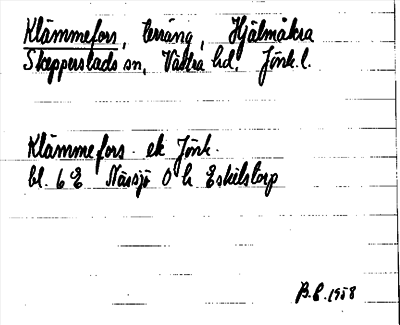 Klämmefors, terräng, Hjälmåkra
Skepperstads sn, Västra hd, Jönk. l.
Klämmefors. ek Jönk.
bl. 6 E Nässjö O h Eskilstorp
B.E. 1958